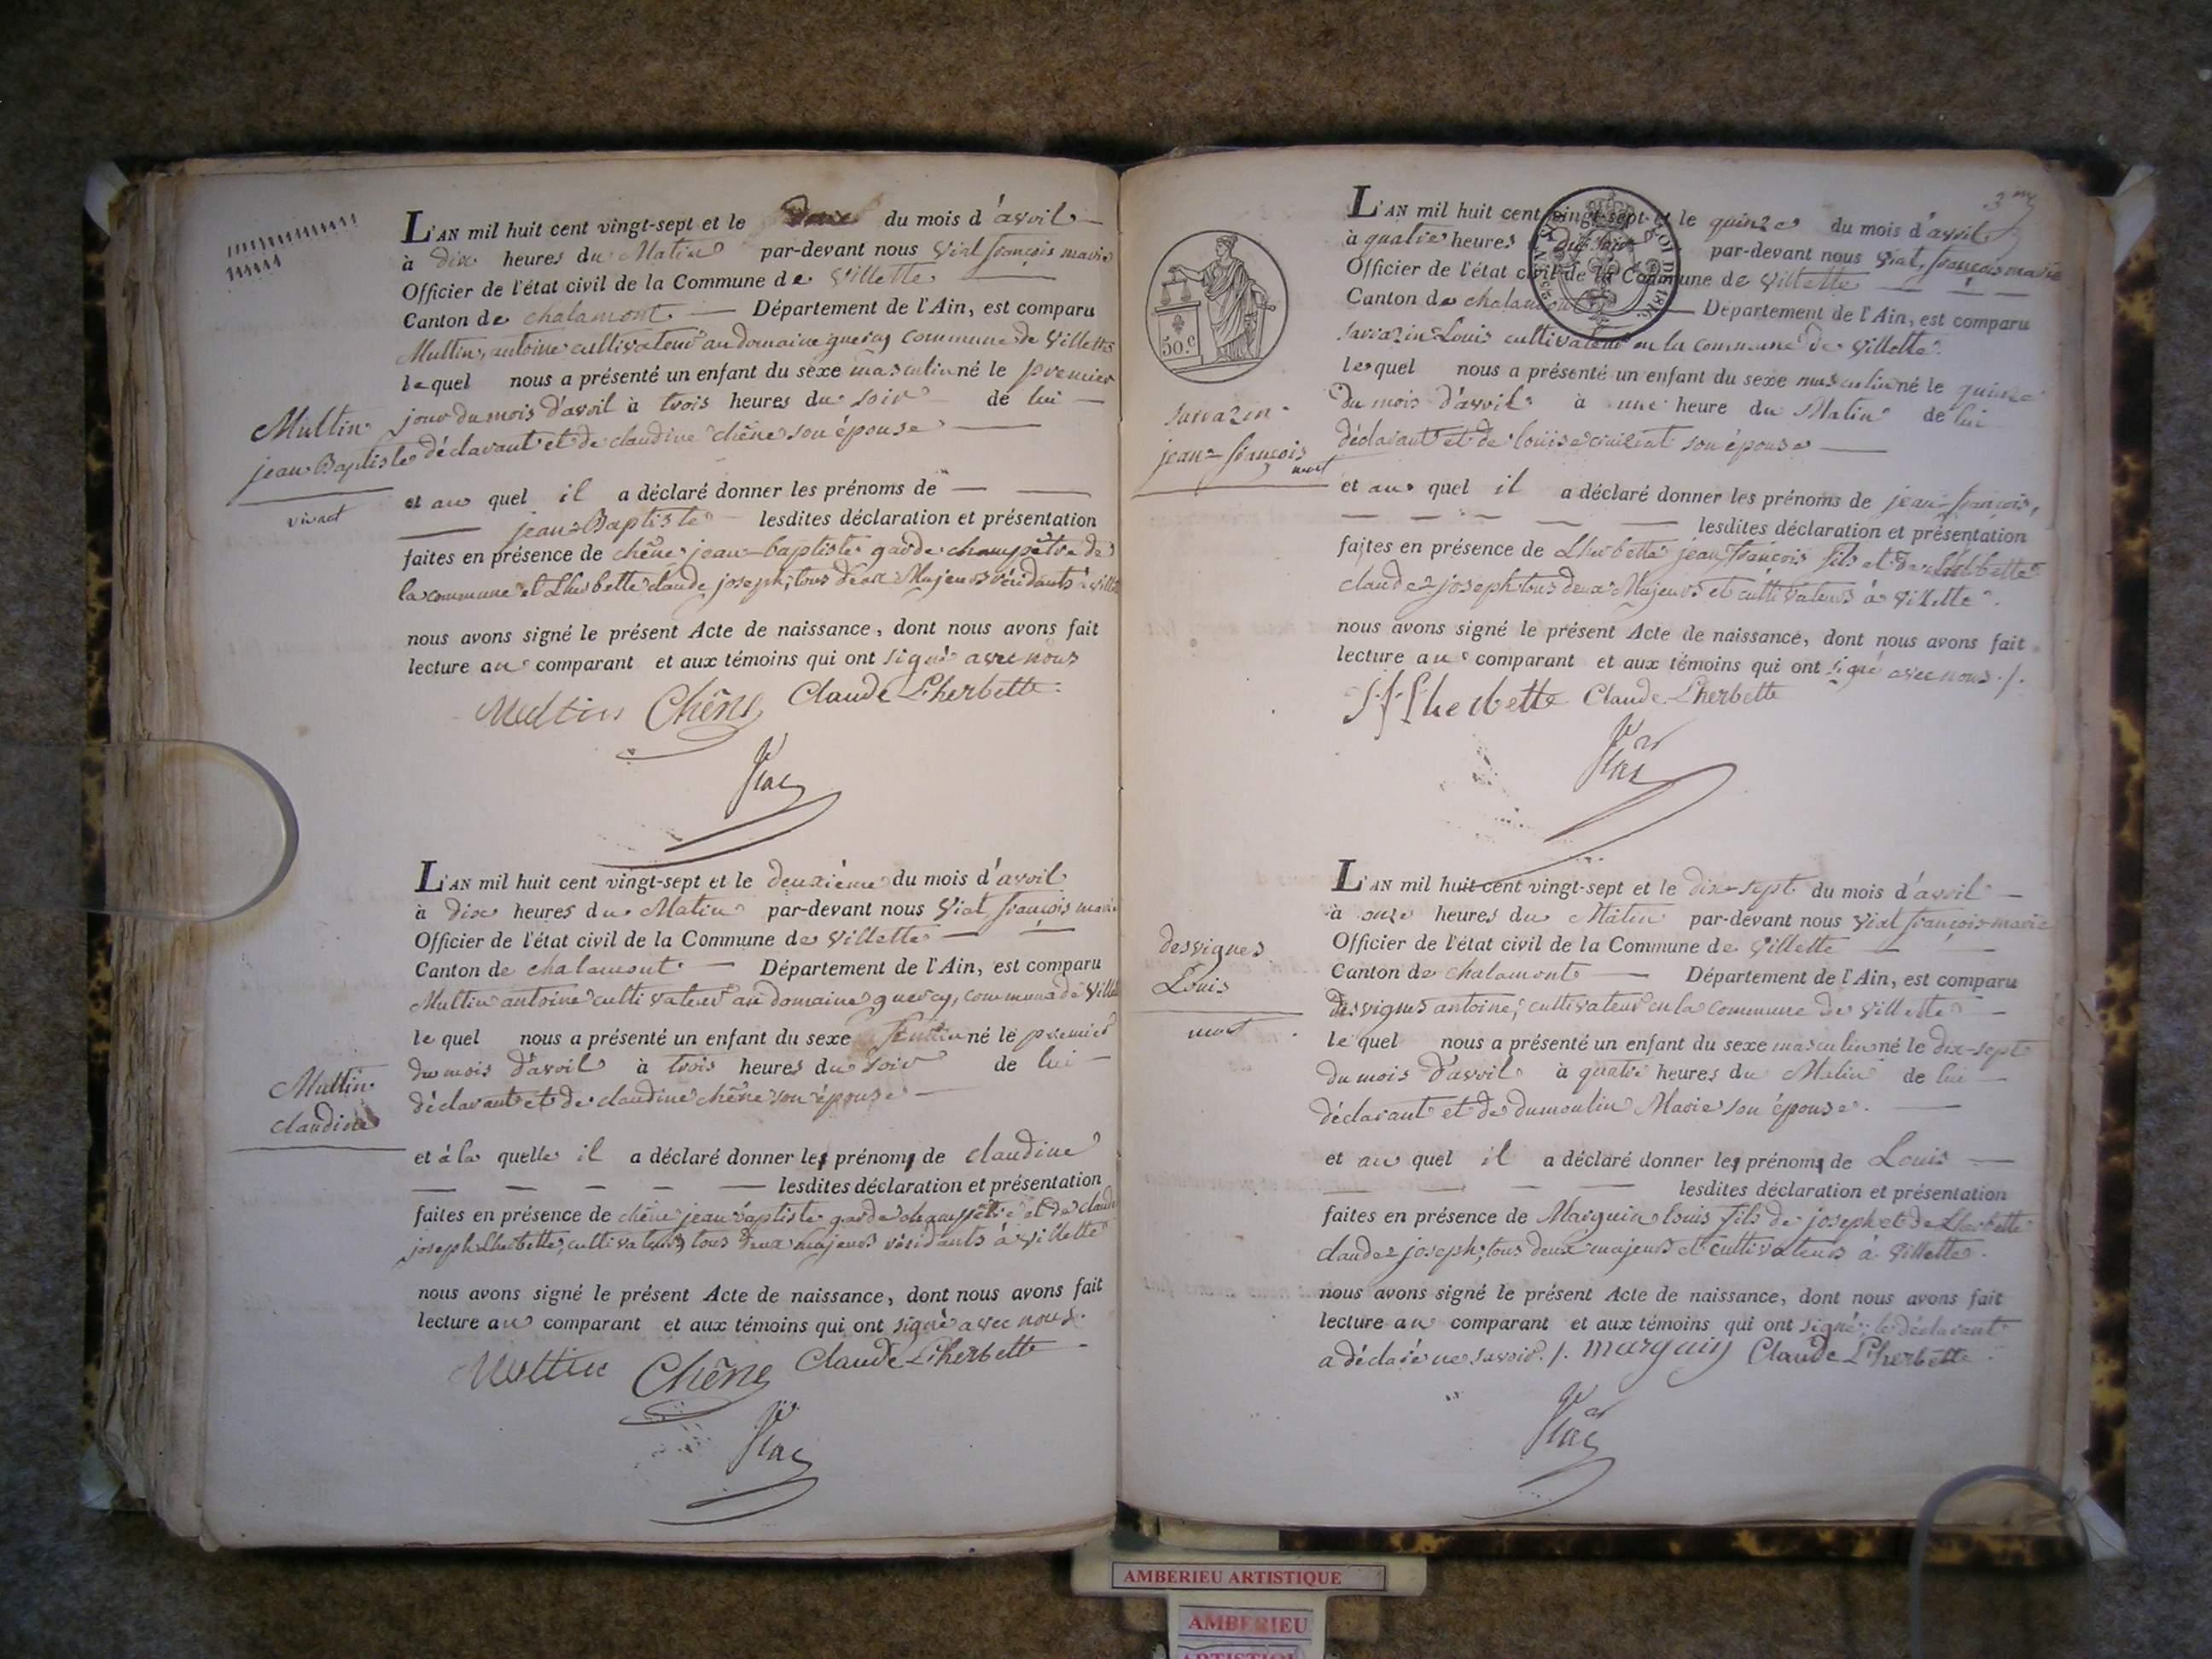 L'AN mil huit cent vingt-sept et le deux du mois d'avril
à dix heures du Matin par-devant nous Vial françois marie
Officier de l'état civil de la Commune de Villette
Canton de chalamont Département de l'Ain, est comparu
Multin, antoine cultivateur au domaine quercy commune de Villette
lequel nous a présenté un enfant du sexe masculin né le premier
jour du mois d'avril à trois heures du soir de lui
déclarant et de claudine chêne son épouse
Multin
jean Baptiste
vivant
et au quel il a déclaré donner les prénoms de
jean=Baptiste lesdites déclaration et présentation
faites en présence de chêne jean-baptiste garde champêtre de
la commune et Lherbette claude joseph, tous deux Majeurs résidants à
nous avons signé le présent Acte de naissance, dont nous avons fait
lecture au comparant et aux témoins qui ont signé avec nous
Multin Chêne Claude Lherbette
Vial
L'AN mil huit cent vingt-sept et le deuxième du mois d'avril
à dix heures du Matin par-devant nous Vial françois marie
Officier de l'état civil de la Commune de Villette
Canton de chalamont Département de l'Ain, est comparu
Multin antoine cultivateur au domaine quercy, commune de
le quel nous a présenté un enfant du sexe féminin né le premier
du mois d'avril à trois heures du soir de lui
déclarant et de claudine chêne son épouse
Multin
claudine
et à la quelle il a déclaré donner les prénoms de claudine
lesdites déclaration et présentation
faites en présence de chêne jean baptiste garde champêtre et de
joseph Lherbette, cultivateur, tous deux majeurs résidants à Villette
nous avons signé le présent Acte de naissance, dont nous avons fait
lecture au comparant et aux témoins qui ont signé avec nous.
Multin Chêne Claude Lherbette
Vial
L'AN mil huit cent vingt-sept et le quinze du mois d'avril
à quatre heures du soir par-devant nous Vial, françois marie
Officier de l'état civil de la Commune de Villette
Canton de chalamont Département de l'Ain, est comparu
sarrazin Louis cultivateur en la commune de Villette
50.c
lequel nous a présenté un enfant du sexe masculin né le quinze
du mois d'avril à une heure du Matin de lui
déclarant et de louise son épouse
sarrazin
jean=françois
mort
et au quel il a déclaré donner les prénoms de jean=françois,
lesdites déclaration et présentation
faites en présence de Lherbette jean françois fils et de Lherbette
claude=joseph tous deux Majeurs et cultivateurs à Villette.
nous avons signé le présent Acte de naissance, dont nous avons fait
lecture au comparant et aux témoins qui ont signé avec nous ./.
Lherbette Claude Lherbette
Vial
L'AN mil huit cent vingt-sept et le dix=sept du mois d'avril
à onze heures du Matin par-devant nous Vial françois-marie
Officier de l'état civil de la Commune de Villette
Canton de chalamont Département de l'Ain, est comparu
desvignes antoine, cultivateur en la commune de Villette
desvignes
Louis
mort
le quel nous a présenté un enfant du sexe masculin né le dix-sept
du mois d'avril à quatre heures du Matin de lui
déclarant et de dumoulin Marie son épouse.
et au quel il a déclaré donner les prénoms de Louis
lesdites déclaration et présentation
faites en présence de Marguin louis fils de joseph et de Lherbette
claude=joseph, tous deux majeurs et cultivateurs à Villette.
nous avons signé le présent Acte de naissance, dont nous avons fait
lecture au comparant et aux témoins qui ont signé; le déclarant
a déclaré ne savoir ./. marguin Claude Lherbette
Vial
AMBERIEU ARTISTIQUE
AMBERIEU
ARTISTIQUE